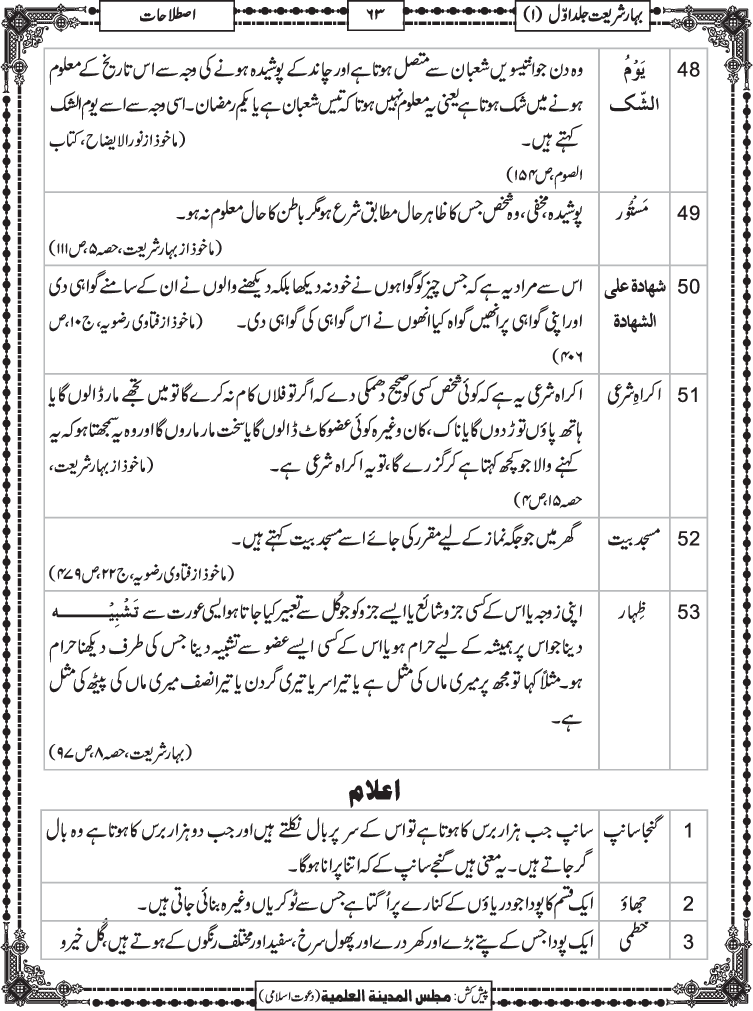 بہار شریعت جلد اوّل (۱)
۶۳
اصطلاحات
48 یَوْمُ الشّک وہ دن جو انتیسویں شعبان سے متصل ہوتا ہے اور چاند کے پوشیدہ ہونے کی وجہ سے اس تاریخ کے معلوم
ہونے میں شک ہوتا ہے یعنی یہ معلوم نہیں ہوتا کہ تیس شعبان ہے یا یکم رمضان۔ اسی وجہ سے اسے یوم الشک
کہتے ہیں۔ (ماخوذ از نور الایضاح، کتاب
الصوم، ص۱۵۴)
49 مَسْتُور پوشیدہ، مخفی، وہ شخص جس کا ظاہر حال مطابق شرع ہو مگر باطن کا حال معلوم نہ ہو۔
(ماخوذ از بہار شریعت، حصہ ۵، ص۱۱۱)
50 شهادة علی الشهادة اس سے مراد یہ ہے کہ جس چیز کو گواہوں نے خود نہ دیکھا بلکہ دیکھنے والوں نے ان کے سامنے گواہی دی
اور اپنی گواہی پر انھیں گواہ کیا انھوں نے اس گواہی کی گواہی دی۔ (ماخوذ از فتاوی رضویہ، ج۱۰، ص
۴۰۶)
51 اکراہِ شرعی اکراہ شرعی یہ ہے کہ کوئی شخص کسی کو صحیح دھمکی دے کہ اگر تو فلاں کام نہ کرے گا تو میں تجھے مار ڈالوں گا یا
ہاتھ پاؤں توڑ دوں گا یا ناک، کان وغیرہ کوئی عضو کاٹ ڈالوں گا یا سخت مار ماروں گا اور وہ یہ سمجھتا ہو کہ یہ
کہنے والا جو کچھ کہتا ہے کر گزرے گا، تو یہ اکراہ شرعی ہے۔ (ماخوذ از بہار شریعت،
حصہ ۱۵، ص۴)
52 مسجد بیت گھر میں جو جگہ نماز کے لیے مقرر کی جائے اسے مسجد بیت کہتے ہیں۔
(ماخوذ از فتاوی رضویہ، ج۲۲، ص۴۷۹)
53 ظِہار اپنی زوجہ یا اس کے کسی جزو شائع یا ایسے جزو کو جو کُل سے تعبیر کیا جاتا ہو ایسی عورت سے تَشْبِیْه
دینا جو اس پر ہمیشہ کے لیے حرام ہو یا اس کے کسی ایسے عضو سے تشبیہ دینا جس کی طرف دیکھنا حرام
ہو۔ مثلاً کہا تو مجھ پر میری ماں کی مثل ہے یا تیرا سر یا تیری گردن یا تیرا نصف میری ماں کی پیٹھ کی مثل
ہے۔
(بہار شریعت، حصہ ۸، ص۹۷)
اعلام
1 گنجا سانپ سانپ جب ہزار برس کا ہوتا ہے تو اس کے سر پر بال نکلتے ہیں اور جب دو ہزار برس کا ہوتا ہے وہ بال
گر جاتے ہیں۔ یہ معنی ہیں گنجے سانپ کے کہ اتنا پرانا ہو گا۔
2 جھاؤ ایک قسم کا پودا جو دریاؤں کے کنارے پر اُگتا ہے جس سے ٹوکریاں وغیرہ بنائی جاتی ہیں۔
3 خطمی ایک پودا جس کے پتے بڑے اور کھردرے اور پھول سرخ، سفید اور مختلف رنگوں کے ہوتے ہیں، گُل خیرو
پیش کش: مجلس المدینة العلمیة (دعوت اسلامی)